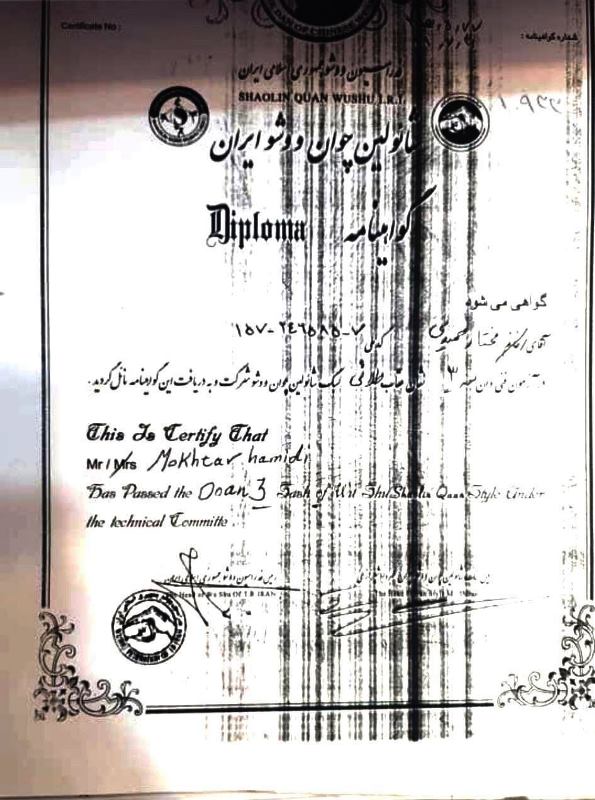 Certificate No :
شماره گواهینامه :
فدراسیون ووشو جمهوری اسلامی ایران
SHAOLIN QUAN WUSHU I.R.I.
شائولین چوان ووشو ایران
Diploma گواهینامه
گواهی می شود
آقای / مختار حمیدی کدملی ۱۵۷-۲۴۶۵۸۵-۷
در آزمون فنی دان ۳ شال عقاب طلائی سبک شائولین چوان ووشو شرکت و به دریافت این گواهینامه نائل گردید.
This Is Certify That
Mr / Mrs Mokhtar hamidi
Has Passed the Doan 3 Sash of Wu Shu Shaolin Quan Style Under
the technical Committe
رئیس فدراسیون ووشو جمهوری اسلامی ایران
The Head of Wu Shu Of I.R IRAN